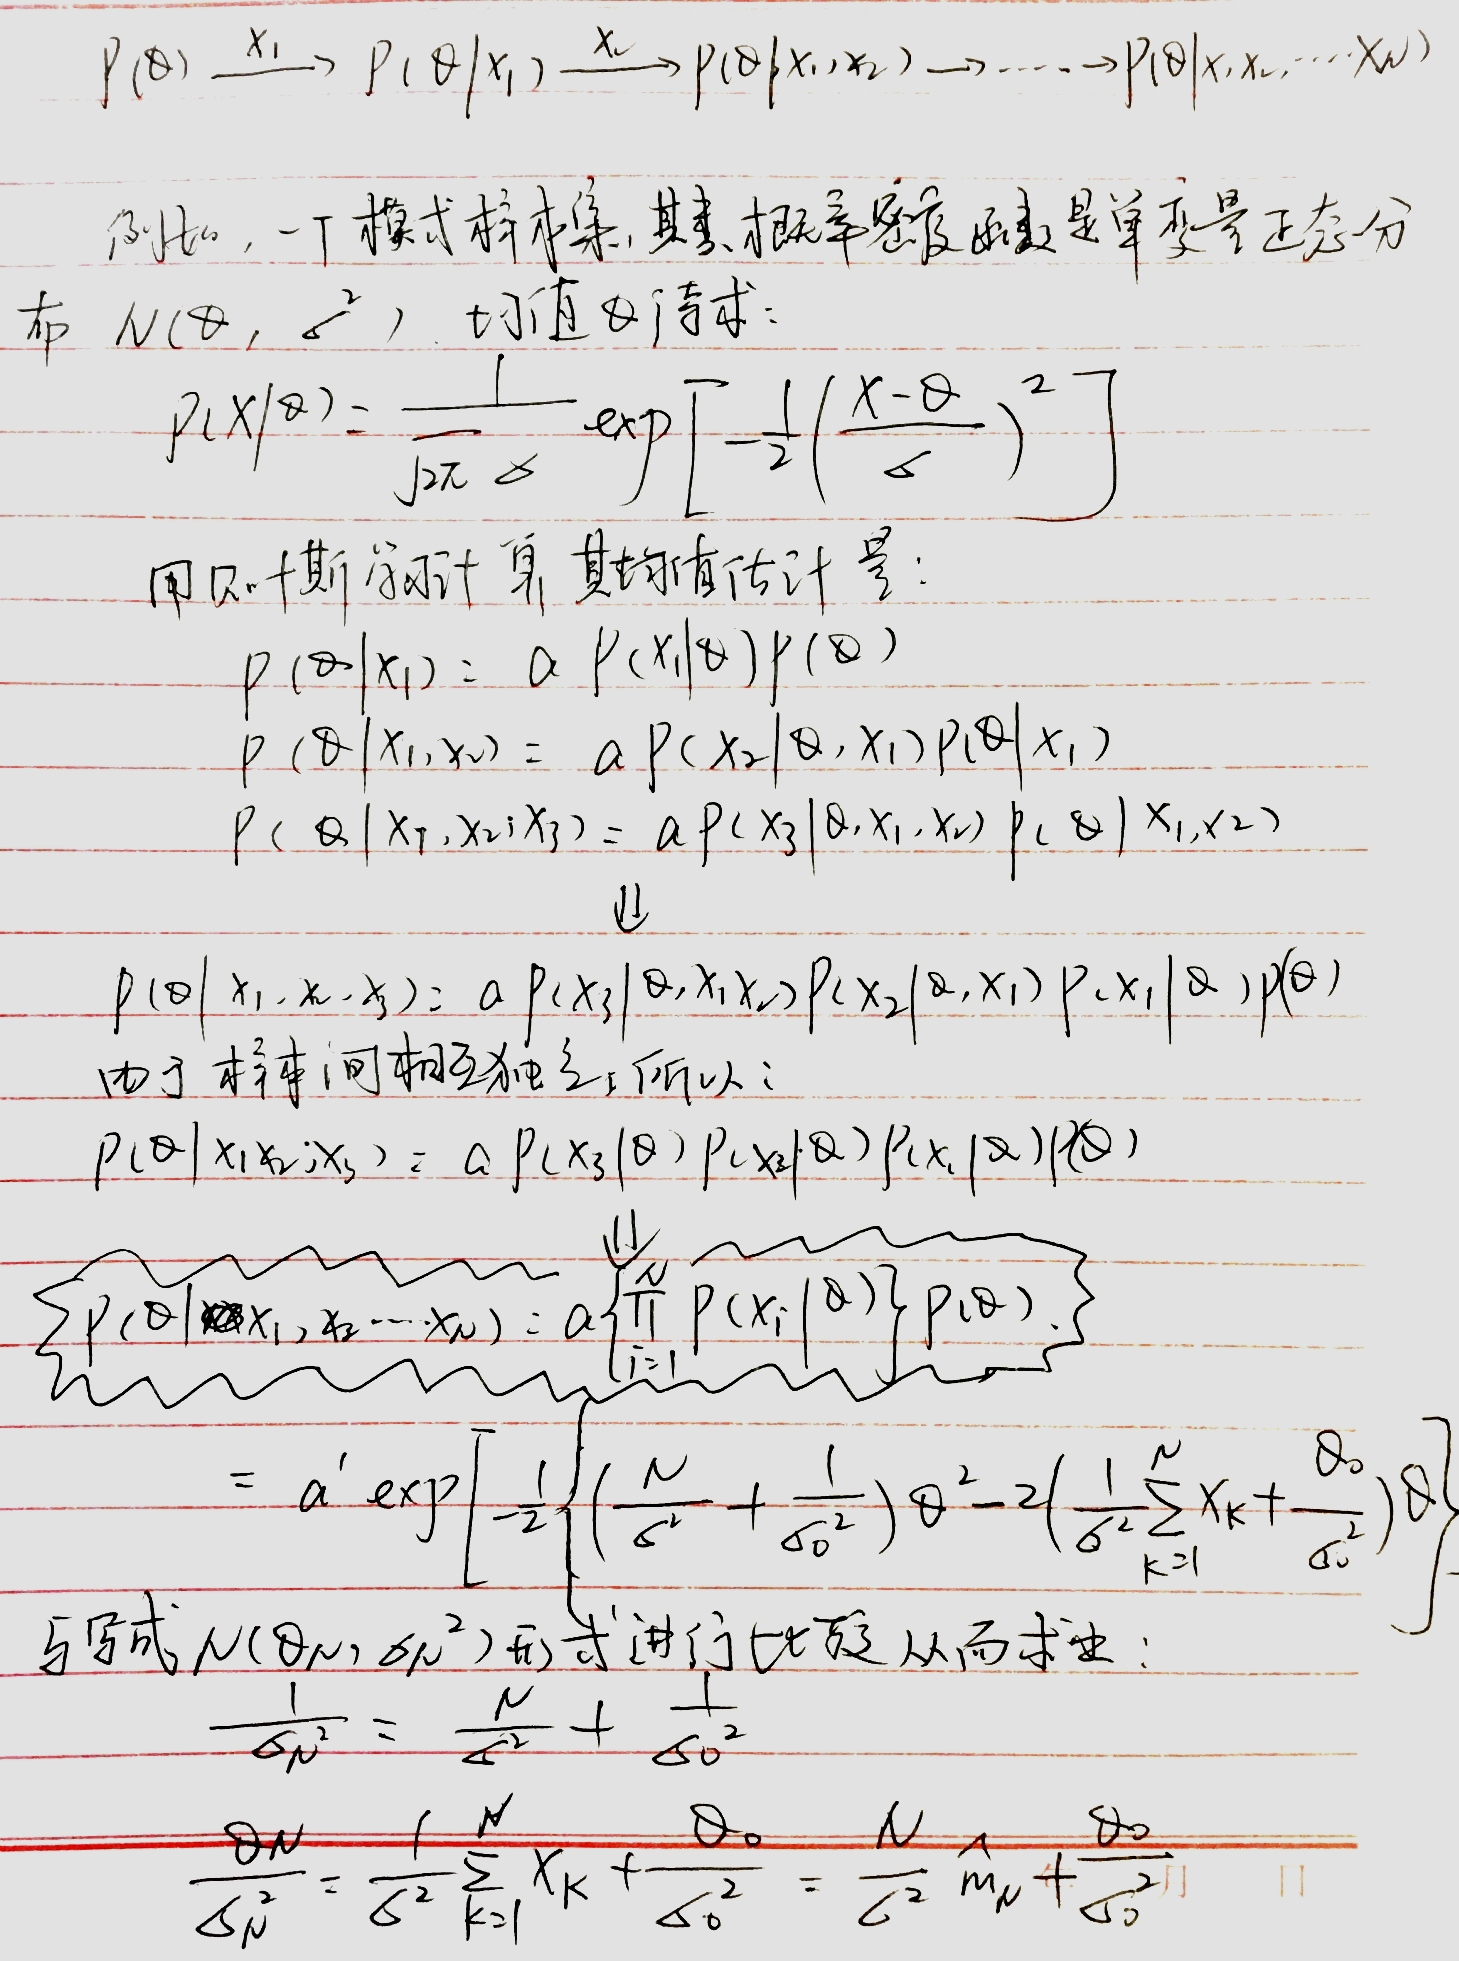 P(θ) —x₁→ P(θ|x₁) —x₂→ P(θ|x₁,x₂) → ······ → P(θ|x₁x₂,····x_N)
例如,一个模式样本集,其类概率密度函数是单变量正态分
布 N(θ, σ²), 均值θ待求:
P(X|θ) = 1/(√2π σ) exp[-1/2((X-θ)/σ)²]
用贝叶斯学习计算其均值估计量:
P(θ|x₁) = a P(x₁|θ)P(θ)
P(θ|x₁,x₂) = a P(x₂|θ,x₁)P(θ|x₁)
P(θ|x₁,x₂,x₃) = a P(x₃|θ,x₁,x₂) P(θ|x₁,x₂)
⇓
P(θ|x₁,x₂,x₃) = a P(x₃|θ,x₁x₂)P(x₂|θ,x₁)P(x₁|θ)P(θ)
由于样本间相互独立,所以:
P(θ|x₁x₂,x₃) = a P(x₃|θ)P(x₂|θ)P(x₁|θ)P(θ)
⇓
P(θ|x₁,x₂····x_N) = a{∏_{i=1}^{N} P(x_i|θ)}P(θ).
= a' exp[-1/2{(N/σ² + 1/σ₀²)θ² - 2(1/σ² ∑_{k=1}^{N} X_K + θ₀/σ₀²)θ}]
与写成N(θ_N, σ_N²)形式进行比较从而求出:
1/σ_N² = N/σ² + 1/σ₀²
θ_N/σ_N² = 1/σ² ∑_{k=1}^{N} X_K + θ₀/σ₀² = N/σ² m̂_N + θ₀/σ₀²
年 月 日